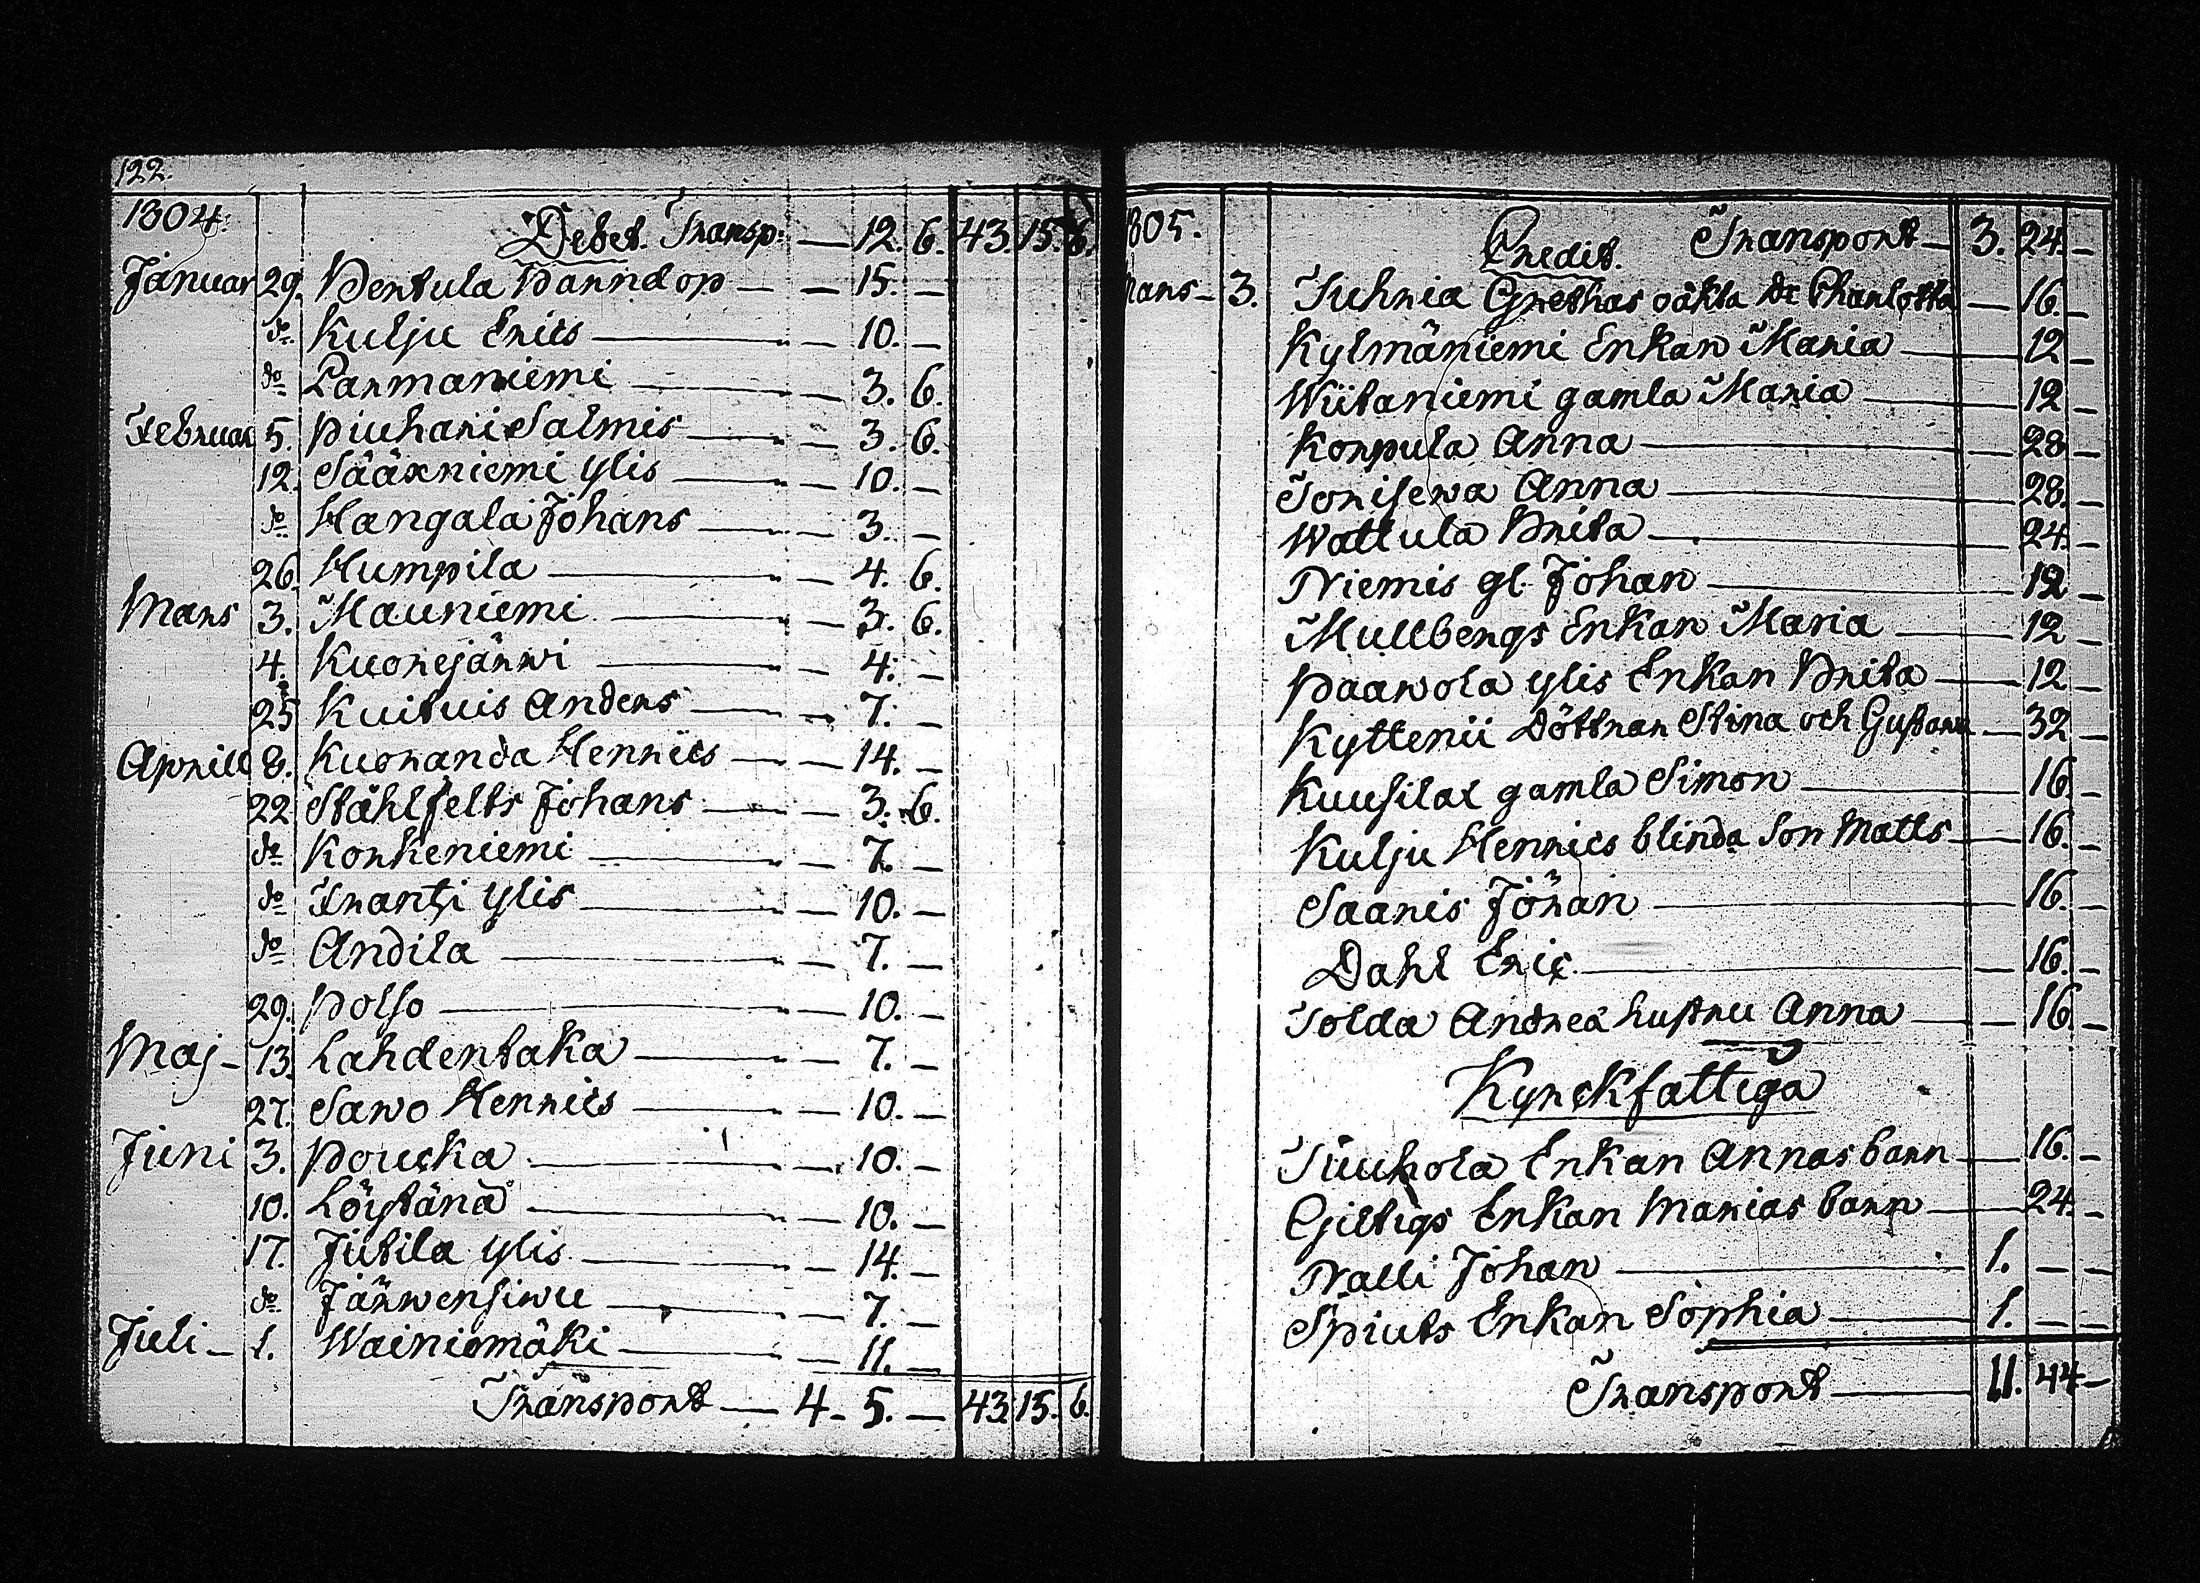 122.
1804.
Debet. Transp: — 12. 6. 43. 15. 6.
Januar 29. Pentula Barndop — — 15. —
do Kulju Erics — — 10. —
do Larmaniemi — — 3. 6.
Februar 5. Piuhari Salmis — — 3. 6.
12. Sääxniemi ylis — — 10. —
do Hangala Johans — — 3. —
26. Humpila — — 4. 6.
Mars 3. Mauniemi — — 3. 6.
4. Kuorejärwi — — 4. —
25 Kuituis Anders — — 7. —
Aprill 8. Kuoranda Henrics — — 14. —
22 Ståhlfelts Johans — — 3. 6.
do Korkeniemi — — 7. —
do Frantzi ylis — — 10. —
do Andila — — 7. —
29. Polso — — 10. —
Maj — 13. Lahdentaka — — 7. —
27. Sawo Henrics — — 10. —
Juni 3. Poucka — — 10. —
10. Löytänä — — 10. —
17. Jutila ylis — — 14. —
do Järwensiwu — — 7. —
Juli — 1. Wainiomäki — — 11. —
Transport — 4 — 5. — 43. 15. 6.
1805.
Credit. Transport — 3. 24. —
Mars — 3. Juhnia Grethas oäkta Dr Charlotta — 16. —
Kylmäniemi Enkan Maria — 12 —
Wiitaniemi gamla Maria — 12 —
Korpula Anna — 28 —
Torisewa Anna — 28. —
Wattula Brita — 24. —
Niemis gl. Johan — 12 —
Mullbergs Enkan Maria — 12 —
Paawola ylis Enkan Brita — 12 —
Kytterii Döttrar Stina och Gustava — 32 —
Kuusilax gamla Simon — 16 —
Kulju Henrics blinda Son Matts — 16. —
Saaris Johan — 16. —
Dahl Eric — 16. —
Solda Andrea hustru Anna — 16. —
Kyrckfattiga
Tuuhola Enkan Annas barn — 16. —
Giltigs Enkan Marias barn — 24. —
Nalli Johan — 1. — —
Spiuts Enkan Sophia — 1. — —
Transport — 11. 44 —